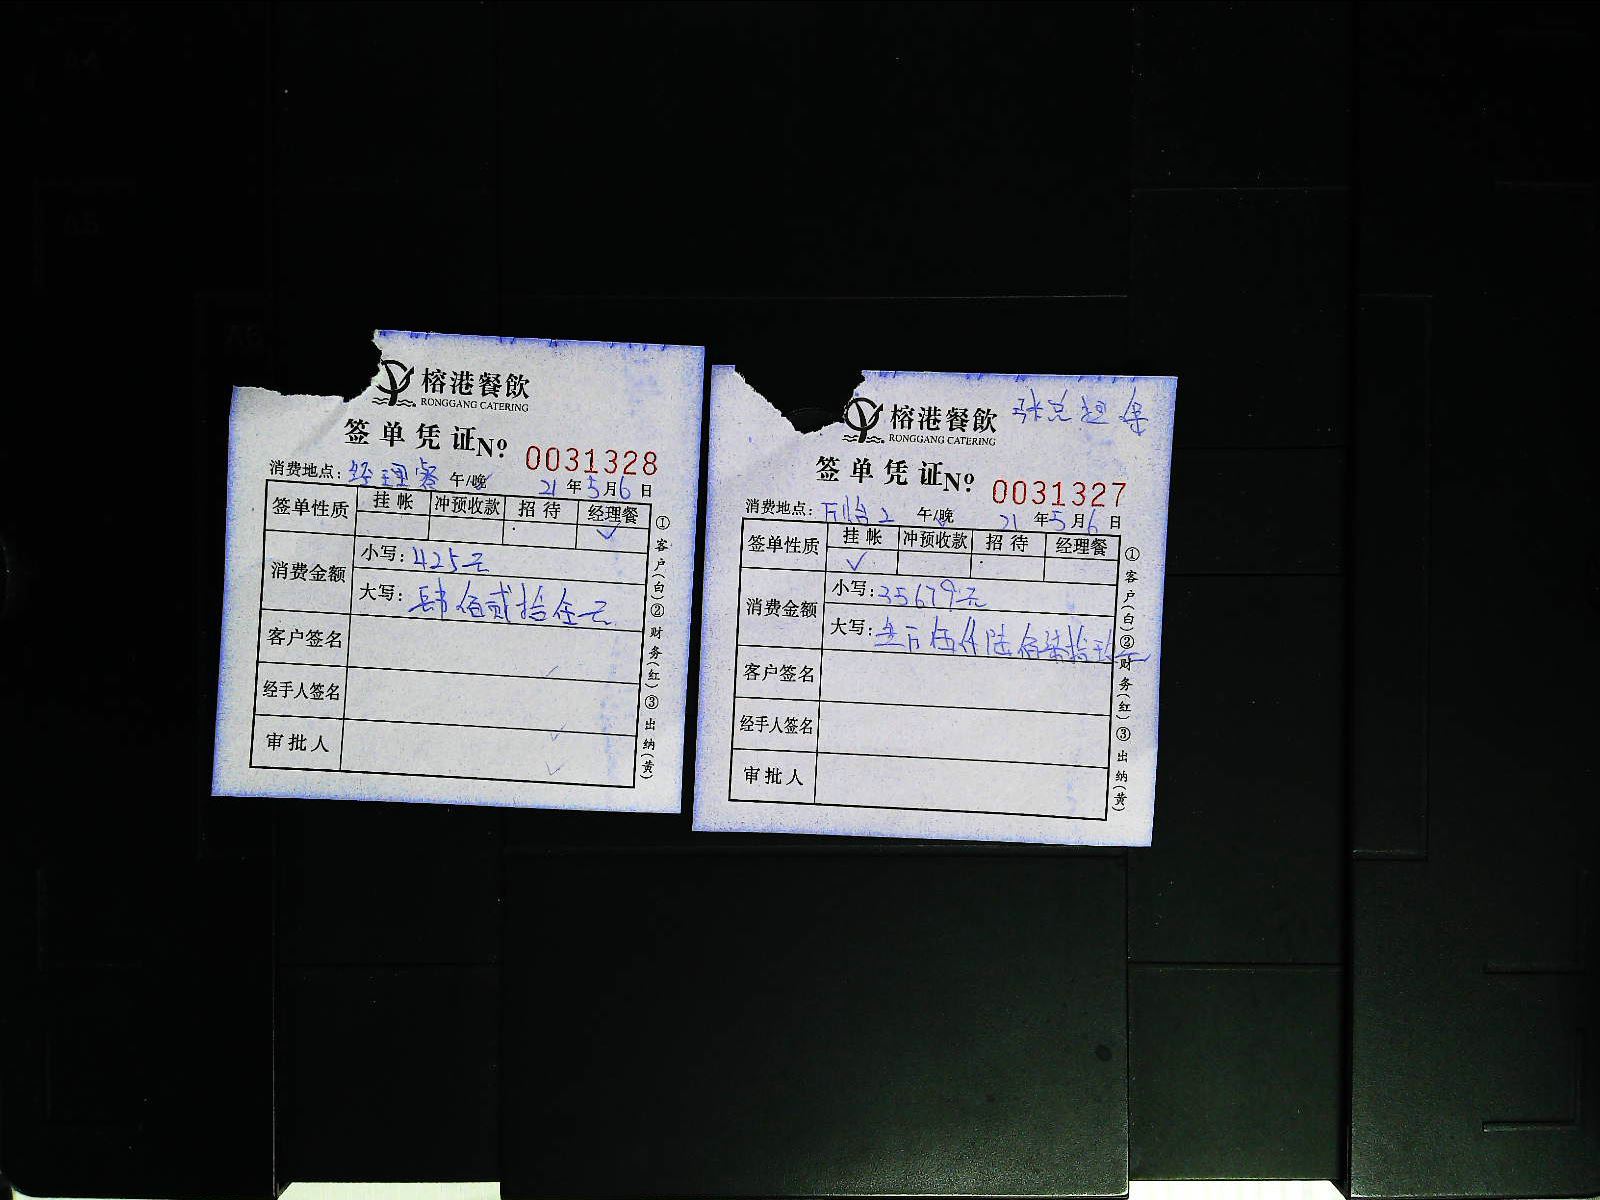 榕港餐飲
RONGGANG CATERING
签单凭证 Nº 0031328
消费地点: 经理餐 午/晚 21年5月6日
签单性质 挂帐 冲预收款 招待 经理餐
✓
消费金额 小写: 425元
大写: 肆佰贰拾伍元
客户签名
经手人签名
审批人
①客户(白)②财务(红)③出纳(黄)
榕港餐飲 张总担保
RONGGANG CATERING
签单凭证 Nº 0031327
消费地点: 午/晚 21年5月6日
签单性质 挂帐 冲预收款 招待 经理餐
✓
消费金额 小写: 35679元
大写: 叁万伍仟陆佰柒拾玖元
客户签名
经手人签名
审批人
①客户(白)②财务(红)③出纳(黄)